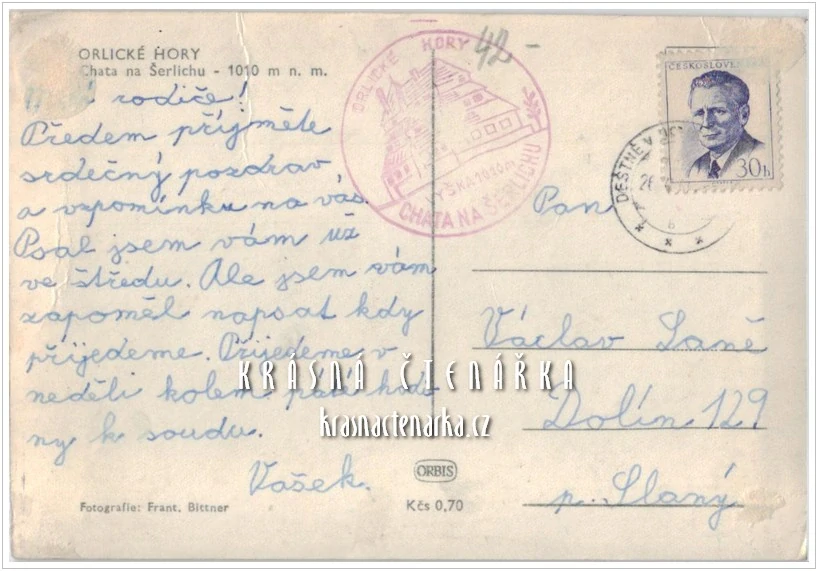 ORLICKÉ HORY
Chata na Šerlichu - 1010 m n. m.
rodiče!
Předem přijměte
srdečný pozdrav
a vzpomínku na vás.
Psal jsem vám už
ve středu. Ale jsem vám
zapoměl napsat kdy
přijedeme. Přijedeme v
neděli kolem páté hodi
ny k soudu.
Vašek.
Fotografie: Frant. Bittner
ORLICKÉ HORY
VÝŠKA 1010 m
CHATA NA ŠERLICHU
42 -
ČESKOSLOVENSKO
30 h
DEŠTNÉ V
Pan
Václav Laně
Dolín 129
p. Slaný
ORBIS
Kčs 0,70
KRÁSNÁ ČTENÁŘKA
krasnactenarka.cz